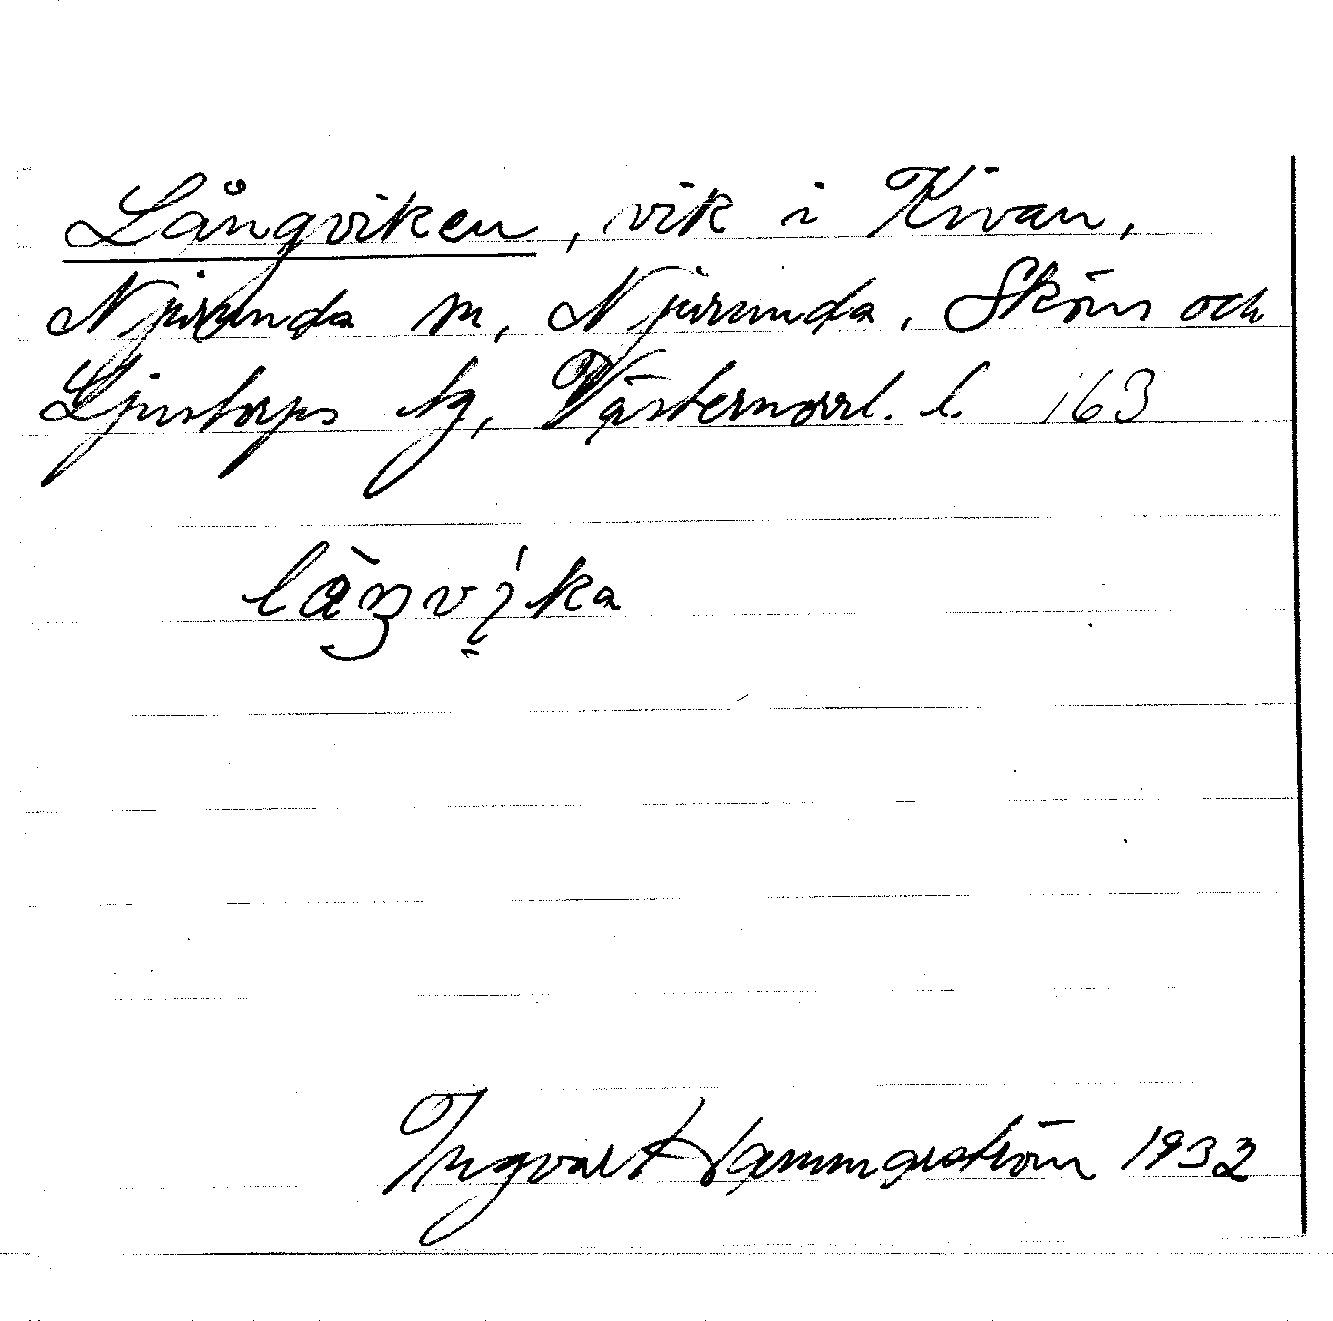 Långviken, vik i Kivan,
Njurunda sn, Njurunda, Sköns och
Ljustorps tg, Västernorrl. l. 163
Ingvar Hammarström 1932